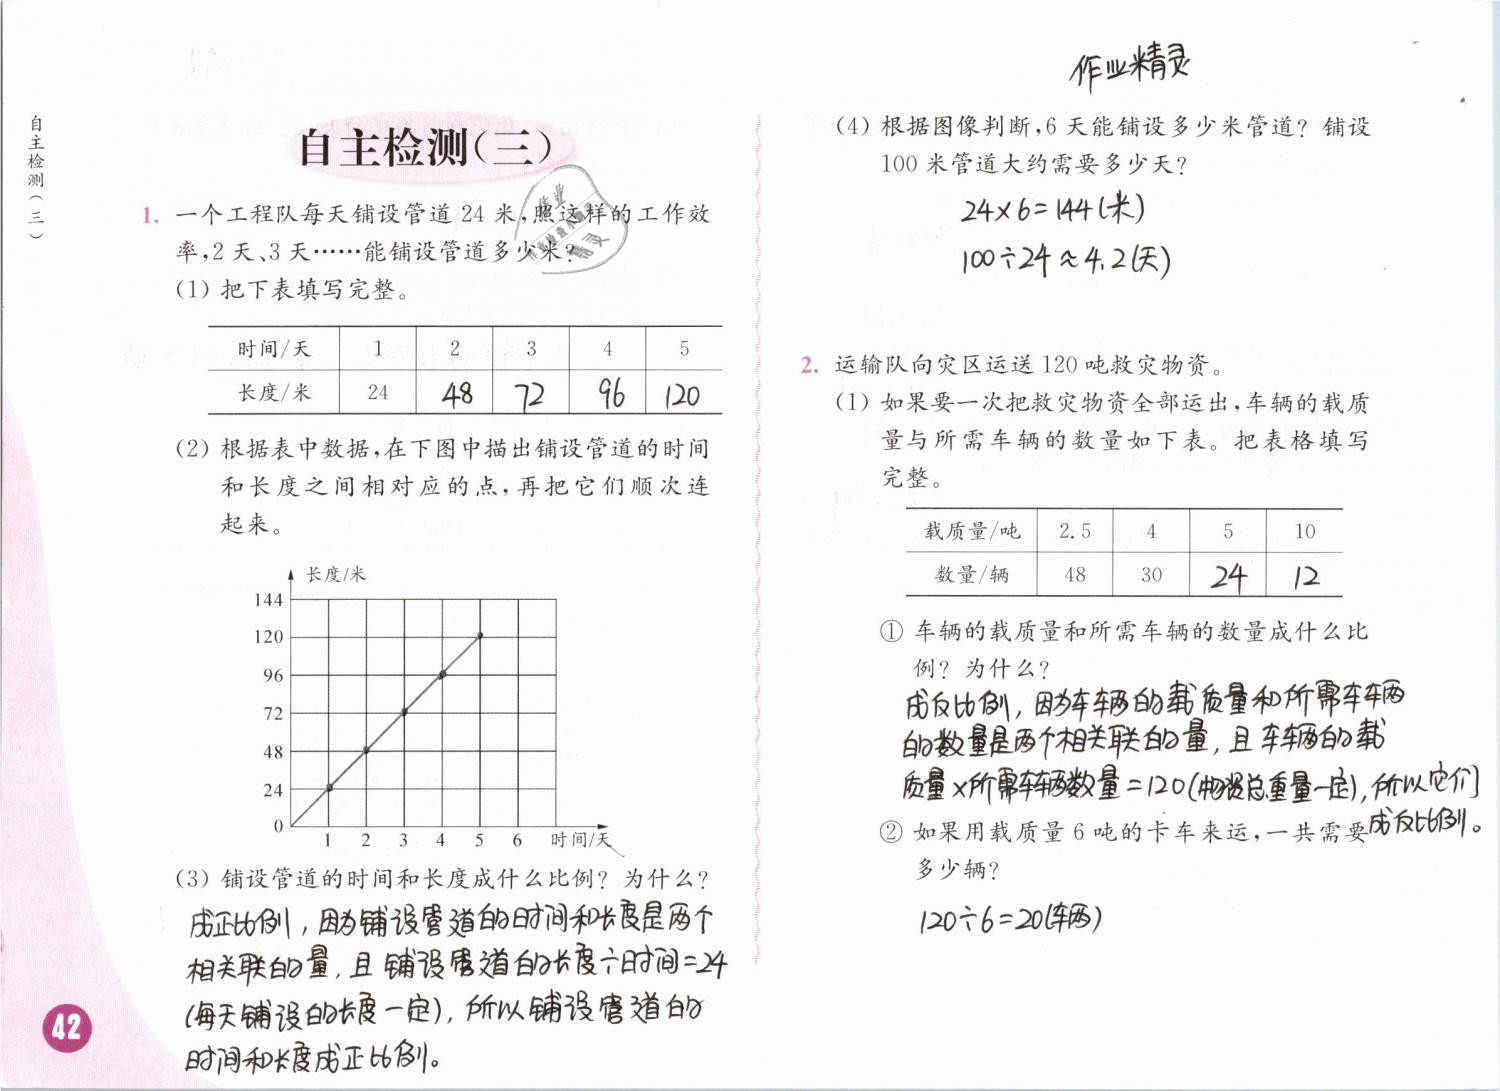 自主检测(三)
自主检测(三)
1. 一个工程队每天铺设管道 24 米,照这样的工作效
率,2 天、3 天……能铺设管道多少米?
(1) 把下表填写完整。
时间/天 1 2 3 4 5
长度/米 24 48 72 96 120
(2) 根据表中数据,在下图中描出铺设管道的时间
和长度之间相对应的点,再把它们顺次连
起来。
长度/米
144
120
96
72
48
24
0
1 2 3 4 5 6 时间/天
(3) 铺设管道的时间和长度成什么比例? 为什么?
成正比例，因为铺设管道的时间和长度是两个
相关联的量,且铺设管道的长度÷时间=24
(每天铺设的长度一定),所以铺设管道的
时间和长度成正比例。
42
作业精灵
(4) 根据图像判断,6 天能铺设多少米管道? 铺设
100 米管道大约需要多少天?
24×6=144(米)
100÷24≈4.2(天)
2. 运输队向灾区运送 120 吨救灾物资。
(1) 如果要一次把救灾物资全部运出,车辆的载质
量与所需车辆的数量如下表。把表格填写
完整。
载质量/吨 2.5 4 5 10
数量/辆 48 30 24 12
① 车辆的载质量和所需车辆的数量成什么比
例? 为什么?
成反比例，因为车辆的载质量和所需车辆
的数量是两个相关联的量,且车辆的载
质量×所需车辆数量=120(物资总重量一定),所以它们
成反比例。
② 如果用载质量 6 吨的卡车来运,一共需要
多少辆?
120÷6=20(辆)